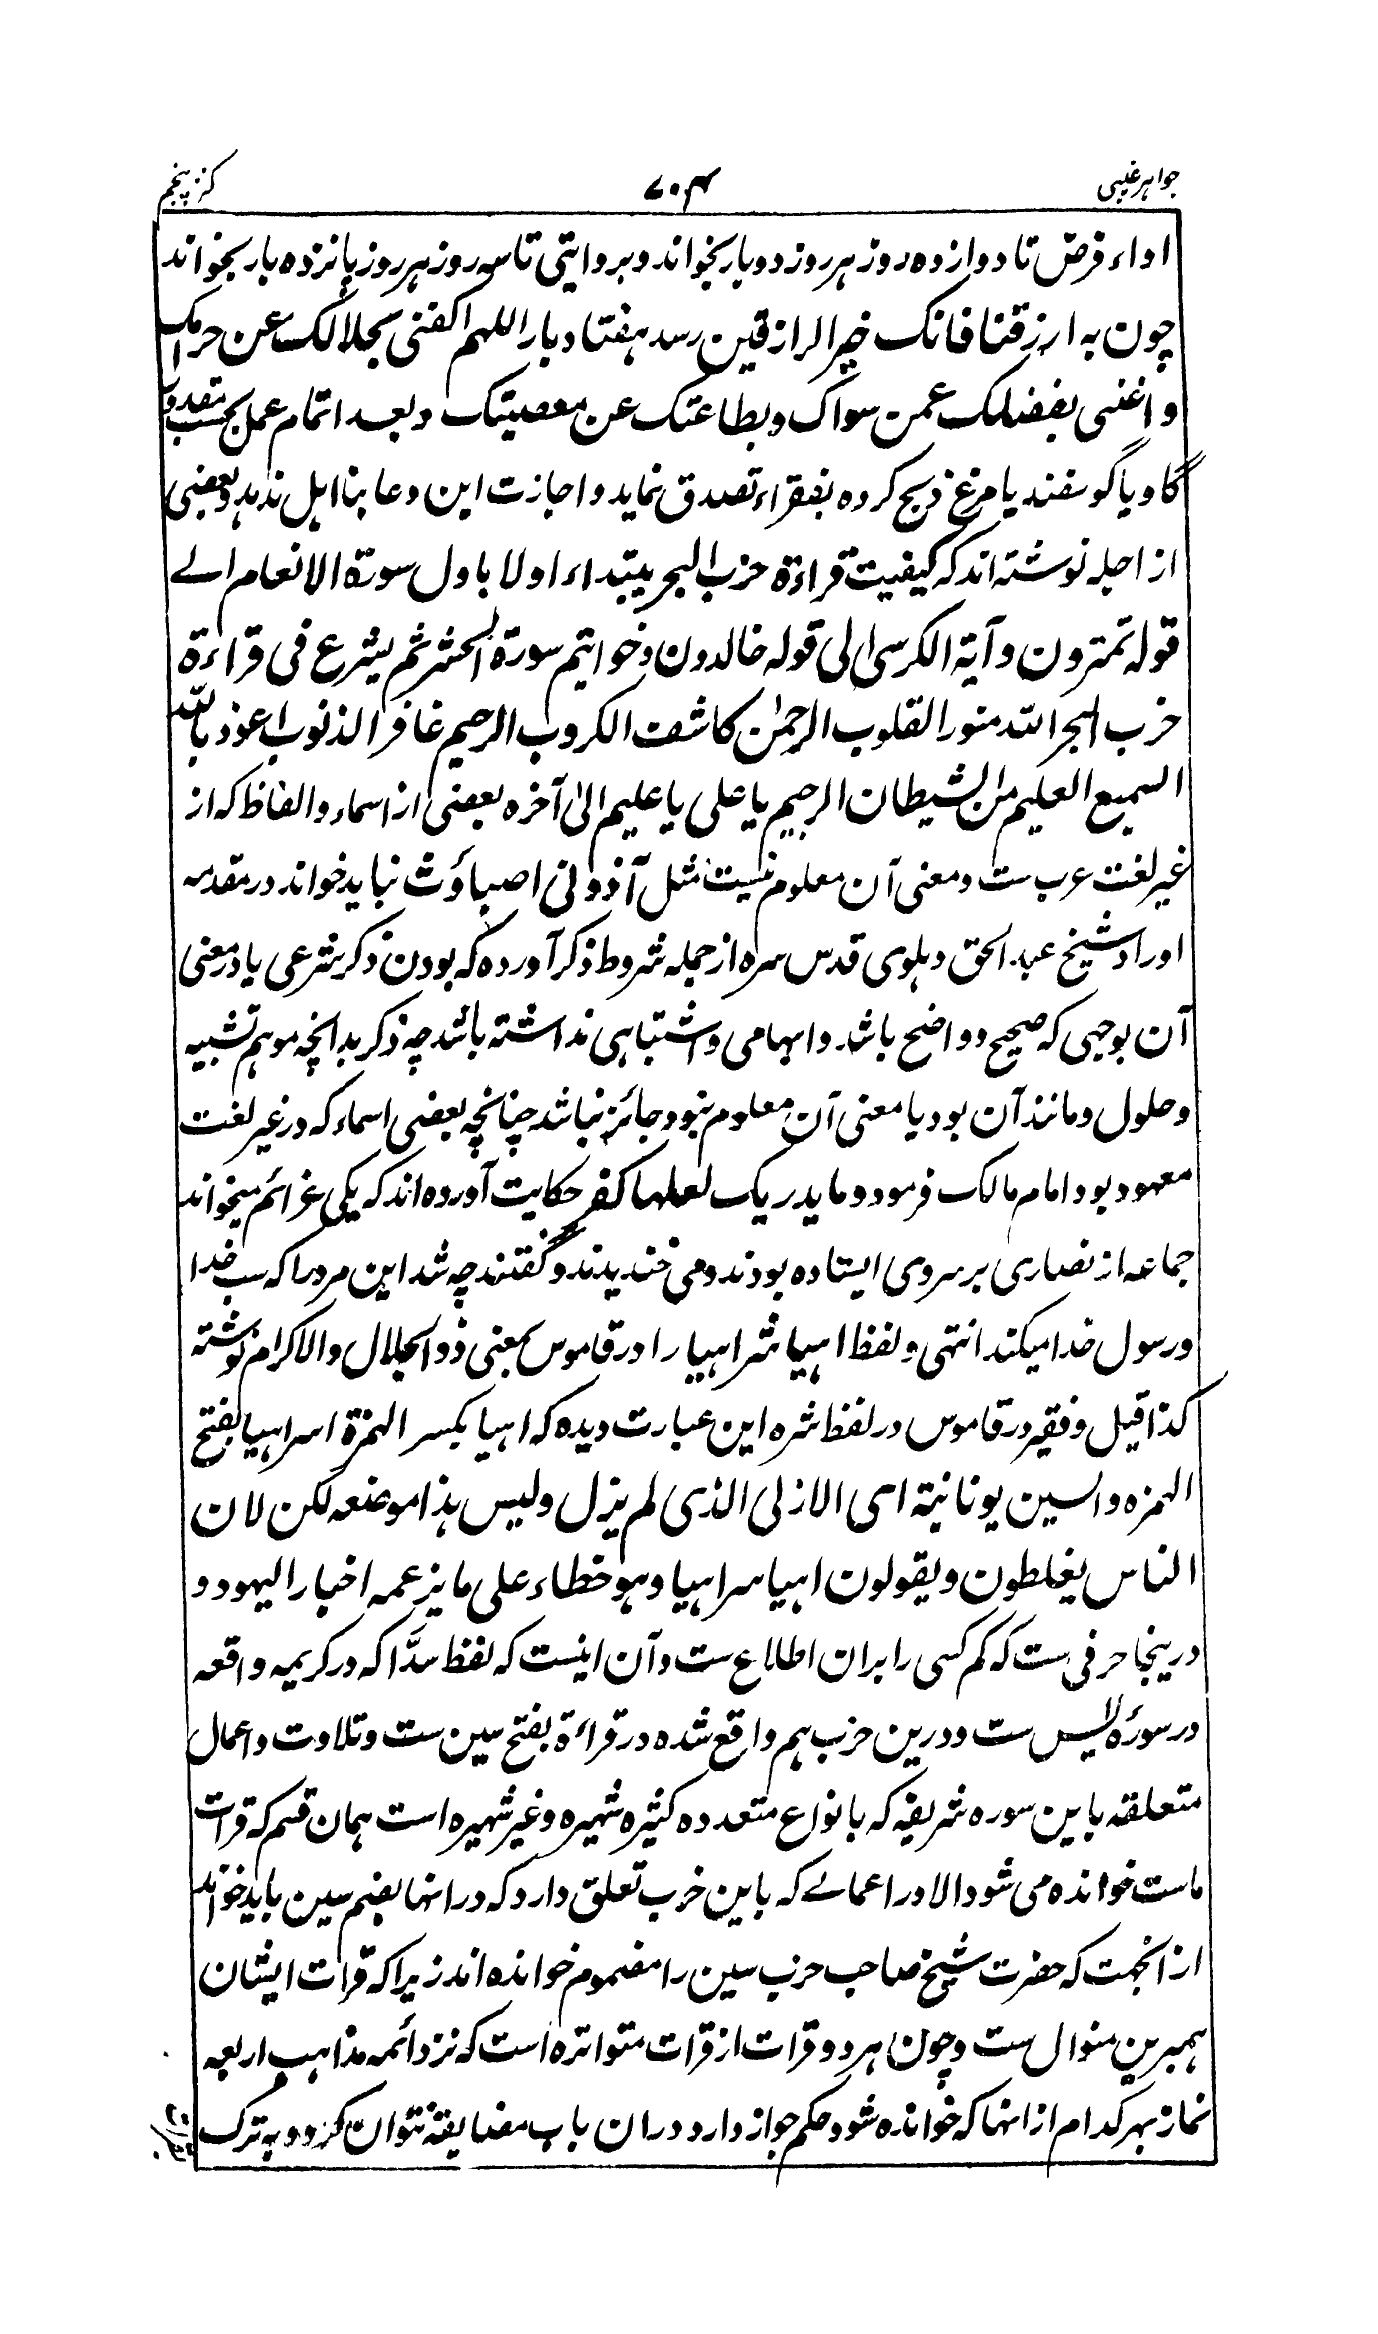 جواهر غیبی
۷۰۴
کنز پنجم
اداء فرض تا دوازده روز هر روز دو بار بخواند و بروایتی تا سه روز هر روز پانزده بار بخواند
چون به ارزقنا فانک خیر الرازقین رسد هفتاد بار اللهم اکفنی بحلالک عن حرامک
و اغننی بفضلک عمن سواک و بطاعتک عن معصیتک و بعد اتمام عمل بحسب مقدور
گاو یا گوسفند یا مرغ ذبح کرده بفقراء تصدق نماید و اجازت این دعا بنا اهل ندهد و بعضی
از اجله نوشته اند که کیفیت قراءة حزب البحر یبتداء اولا باول سورة الانعام الے
قوله تمترون و آیة الکرسی الی قوله خالدون و خواتیم سورة الحشر ثم یشرع فی قراءة
حزب البحر الله منور القلوب الرحمٰن کاشف الکروب الرحیم غافر الذنوب اعوذ بالله
السمیع العلیم من الشیطان الرجیم یا علی یا علیم الیٰ آخره بعضی از اسماء و الفاظ که از
غیر لغت عرب ست و معنی آن معلوم نیست مثل آذونی اصباؤث نباید خواند در مقدمه
اوراد شیخ عبد الحق دهلوی قدس سره از جمله شروط ذکر آورده که بودن ذکر شرعی یا در معنی
آن بوجهی که صحیح و واضح باشد و ابهامی و اشتباهی نداشته باشد چه ذکر بدانچه موهم تشبیه
و حلول و مانند آن بود یا معنی آن معلوم نبود جائز نباشد چنانچه بعضی اسماء که در غیر لغت
معهود بود امام مالک فرمود و ما یدریک لعلها کفر حکایت آورده اند که یکی عزائم میخواند
جماعه از نصاری بر سر وی ایستاده بودند و می خندیدند و گفتند چه شد این مرد را که سب خدا
و رسول خدا میکند انتهی و لفظ اهیا شراهیا را در قاموس بمعنی ذو الجلال و الاکرام نوشته
کذا قیل و فقیر در قاموس در لفظ شره این عبارت دیده که اهیا بکسر الهمزة اسراهیا بفتح
الهمزه و السین یونانیة ای الازلی الذی لم یزل و لیس هذا موضعه لکن لان
الناس یغلطون و یقولون اهیا سراهیا و هو خطاء علی ما یزعمه اخبار الیهود و
درینجا حرفی ست که کم کسی را بران اطلاع ست و آن اینست که لفظ سدًّا که در کریمه واقعه
در سورهٔ یٰس ست و درین حزب هم واقع شده در قراءة بفتح سین ست و تلاوت و اعمال
متعلقه باین سوره شریفه که بانواع متعدده کثیره شهیره و غیر شهیره است همان قسم که قرات
ماست خوانده می شود الا در اعمالے که باین حزب تعلق دارد که در انها بضم سین باید خواند
از انجهت که حضرت شیخ صاحب حزب سین را مضموم خوانده اند زیرا که قرات ایشان
همبرین منوال ست و چون هر دو قرات از قرات متواتره است که نزد ائمه مذاهب اربعه
نماز بهر کدام از انها که خوانده شود حکم جواز دارد دران باب مضایقه نتوان کرد و به ترک